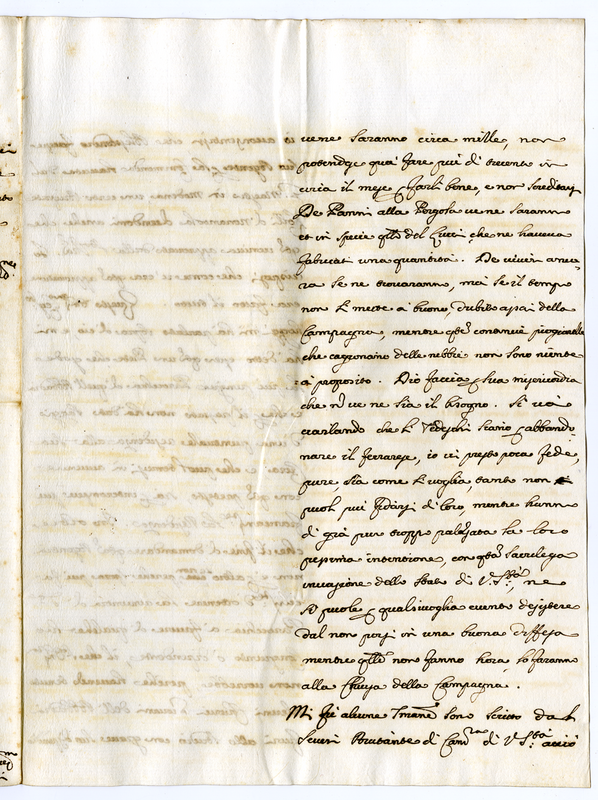 vene saranno circa mille, non
potendosi quà fare più di trecento in
circa il mese farli bene, e non screditarsi
De Panni alla Pergola ve ne saranno
et in specie del Lucci, che ne haveva
fabricati una quantità. De viveri anco
ra se ne trovaranno, mà se il tempo
non si mette à buono, dubito assai della
Campagna, mentre continue pioggiarelle
che cagionano delle nebbie non sono niente
à proposito. Dio faccia sua misericordia
che ve ne sia il bisogno. Si và
ciarlando che li Tedeschi siano abbando
nare il Ferrarese, io vi presto poca fede,
pure, sia come si voglia, tanto non
puol più fidarsi di loro, mentre hanno
di già pur troppo palesata la loro
pessima intentione, con sacrilega
invasione dello stato di V. Stà, ne
si puole qualsivoglia evento desistere
dal non porsi in una buona diffesa
mentre non fanno hora lo faranno
alla della Campagna.
Mi fù alcune sono scritto dal
Severi di di V. Stà